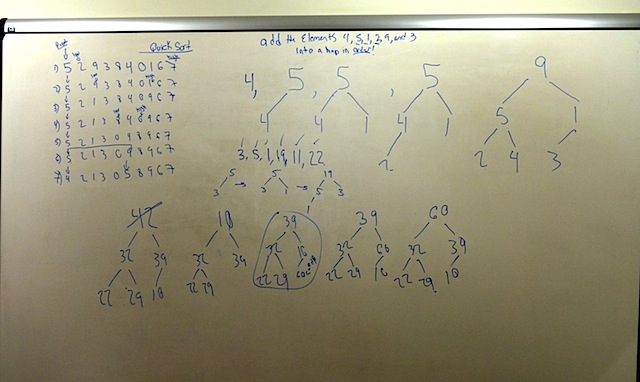 Quick Sort
1) 5 2 9 3 8 4 0 1 6 7
2) 5 2 9 3 8 4 0 1 6 7
3) 5 2 1 3 8 4 0 9 6 7
4) 5 2 1 3 8 4 0 9 6 7
5) 5 2 1 3 0 4 8 9 6 7
7) 4 2 1 3 0 5 8 9 6 7
add the Elements 4, 5, 1, 2, 9, and 3
into a heap in order!
4, 5, 5, 5 9
4 4 1 4 1 5 1
2 2 4 3
3, 5, 1, 19, 11, 22
5 5 19
3 → 3 1 → 5 3
1
42 18 39 39 60
32 39 32 39 32 18 32 60 32 39
22 29 18 22 29 22 29 60 22 29 18 22 29 18